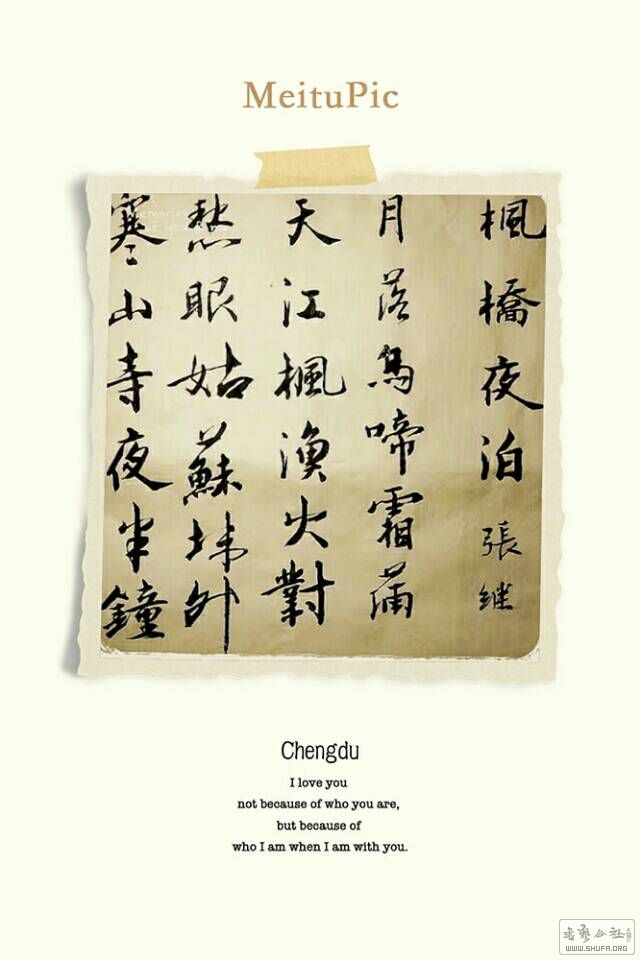 MeituPic
楓橋夜泊 張继
月落烏啼霜滿
天江楓漁火對
愁眠姑蘇城外
寒山寺夜半鐘
Chengdu
I love you
not because of who you are,
but because of
who I am when I am with you.
书艺公社
WWW.SHUFA.ORG